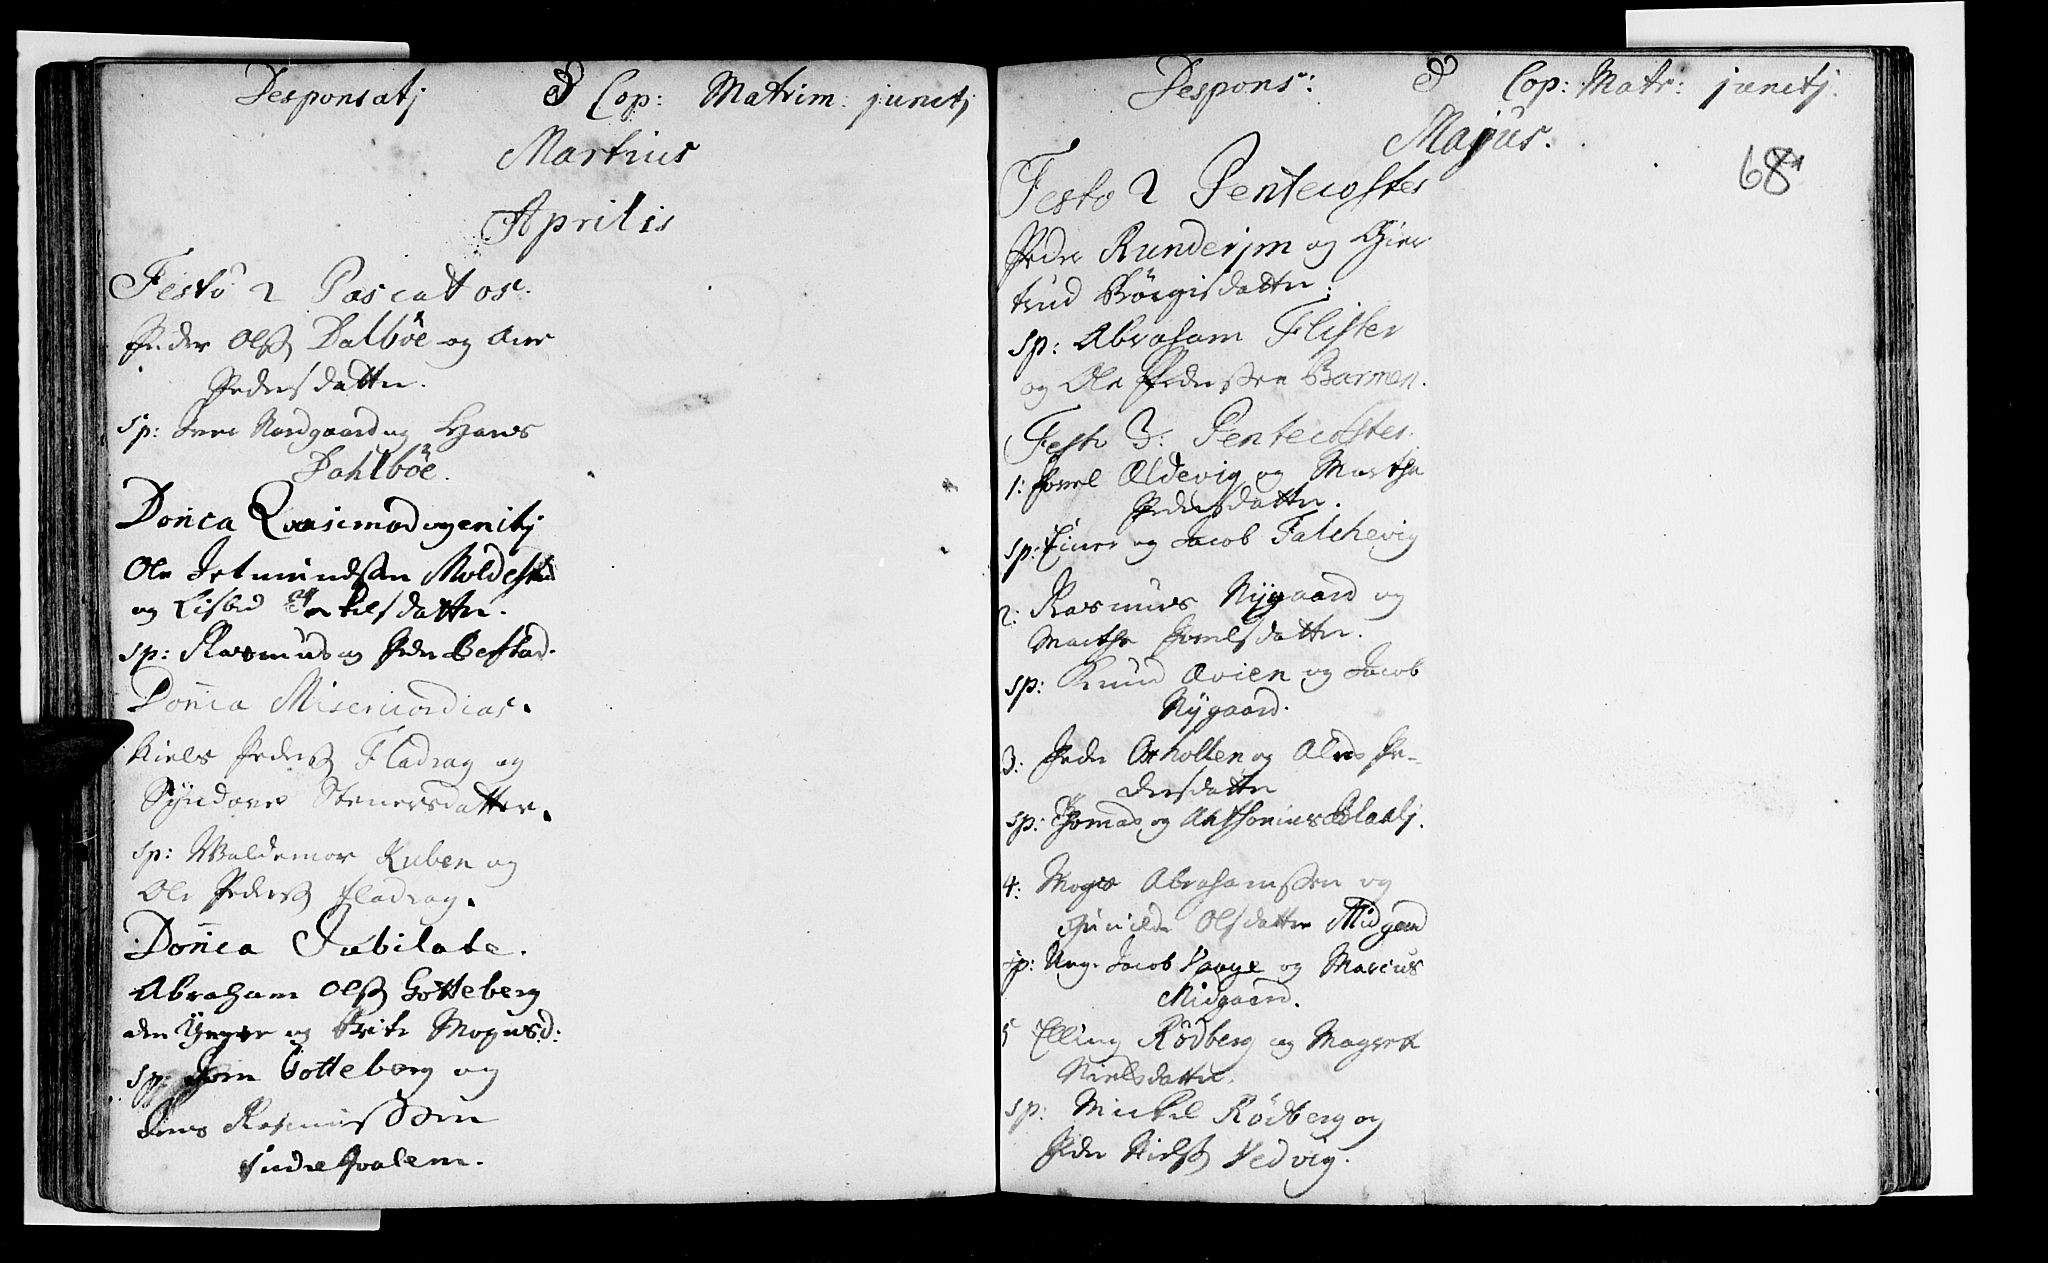 Desponsatj & Cop: Matrim: junctj
Martius
Aprilis
Festo 2 Pascatos.
Peder Olsß Dalböe og Ane
Pedersdatter.
sp: Iver Nordgaard og Hans
Dahlböe.
Don̄ca Qvasimodogenitj
Ole Jetmundssen Moldestad
og Lisbed datter.
sp: Rasmus og Peder Berstad.
Don̄ca Misericordias.
Niels Pedersß Fladrag og
Syndove Stenersdatter.
sp: Waldemor Kuben og
Ole Pedersß Fladrag.
Don̄ca Jubilate.
Abraham Olsß Gotteberg
den Yngre og Brite Mogensd:
sp: Jon Gotteberg og
Jens Rasmussen
Indrehvalem.
Despons: & Cop: Matr: junctj.
Majus.
68
Festo 2 Pentecostes
Peder Runderjm og Gier-
trud Börgisdatter:
sp: Abraham Flister
og Ole Pedersen Barmen.
Festo 3: Pentecostes.
1: Povel Oldevig og Marthe
Pedersdatter.
sp: Einer og Jacob Falchevig
2: Rasmus Nygaard og
Marthe Povelsdatter.
sp: Knud Ovien og Jacob
Nygaard.
3: Peder Orholten og Alud Pe-
dersdatter
sp: Thomas og Anthonius
4: Mogns Abrahamssen og
Gunilde Olsdatter Midgaard
sp: Ung. Jacob Vaage og Marcus
Midgaard.
5 Elling Rödberg og Magrete
Nielsdatter.
sp: Mickel Rödberg og
Peder Nielsß Vedvig.